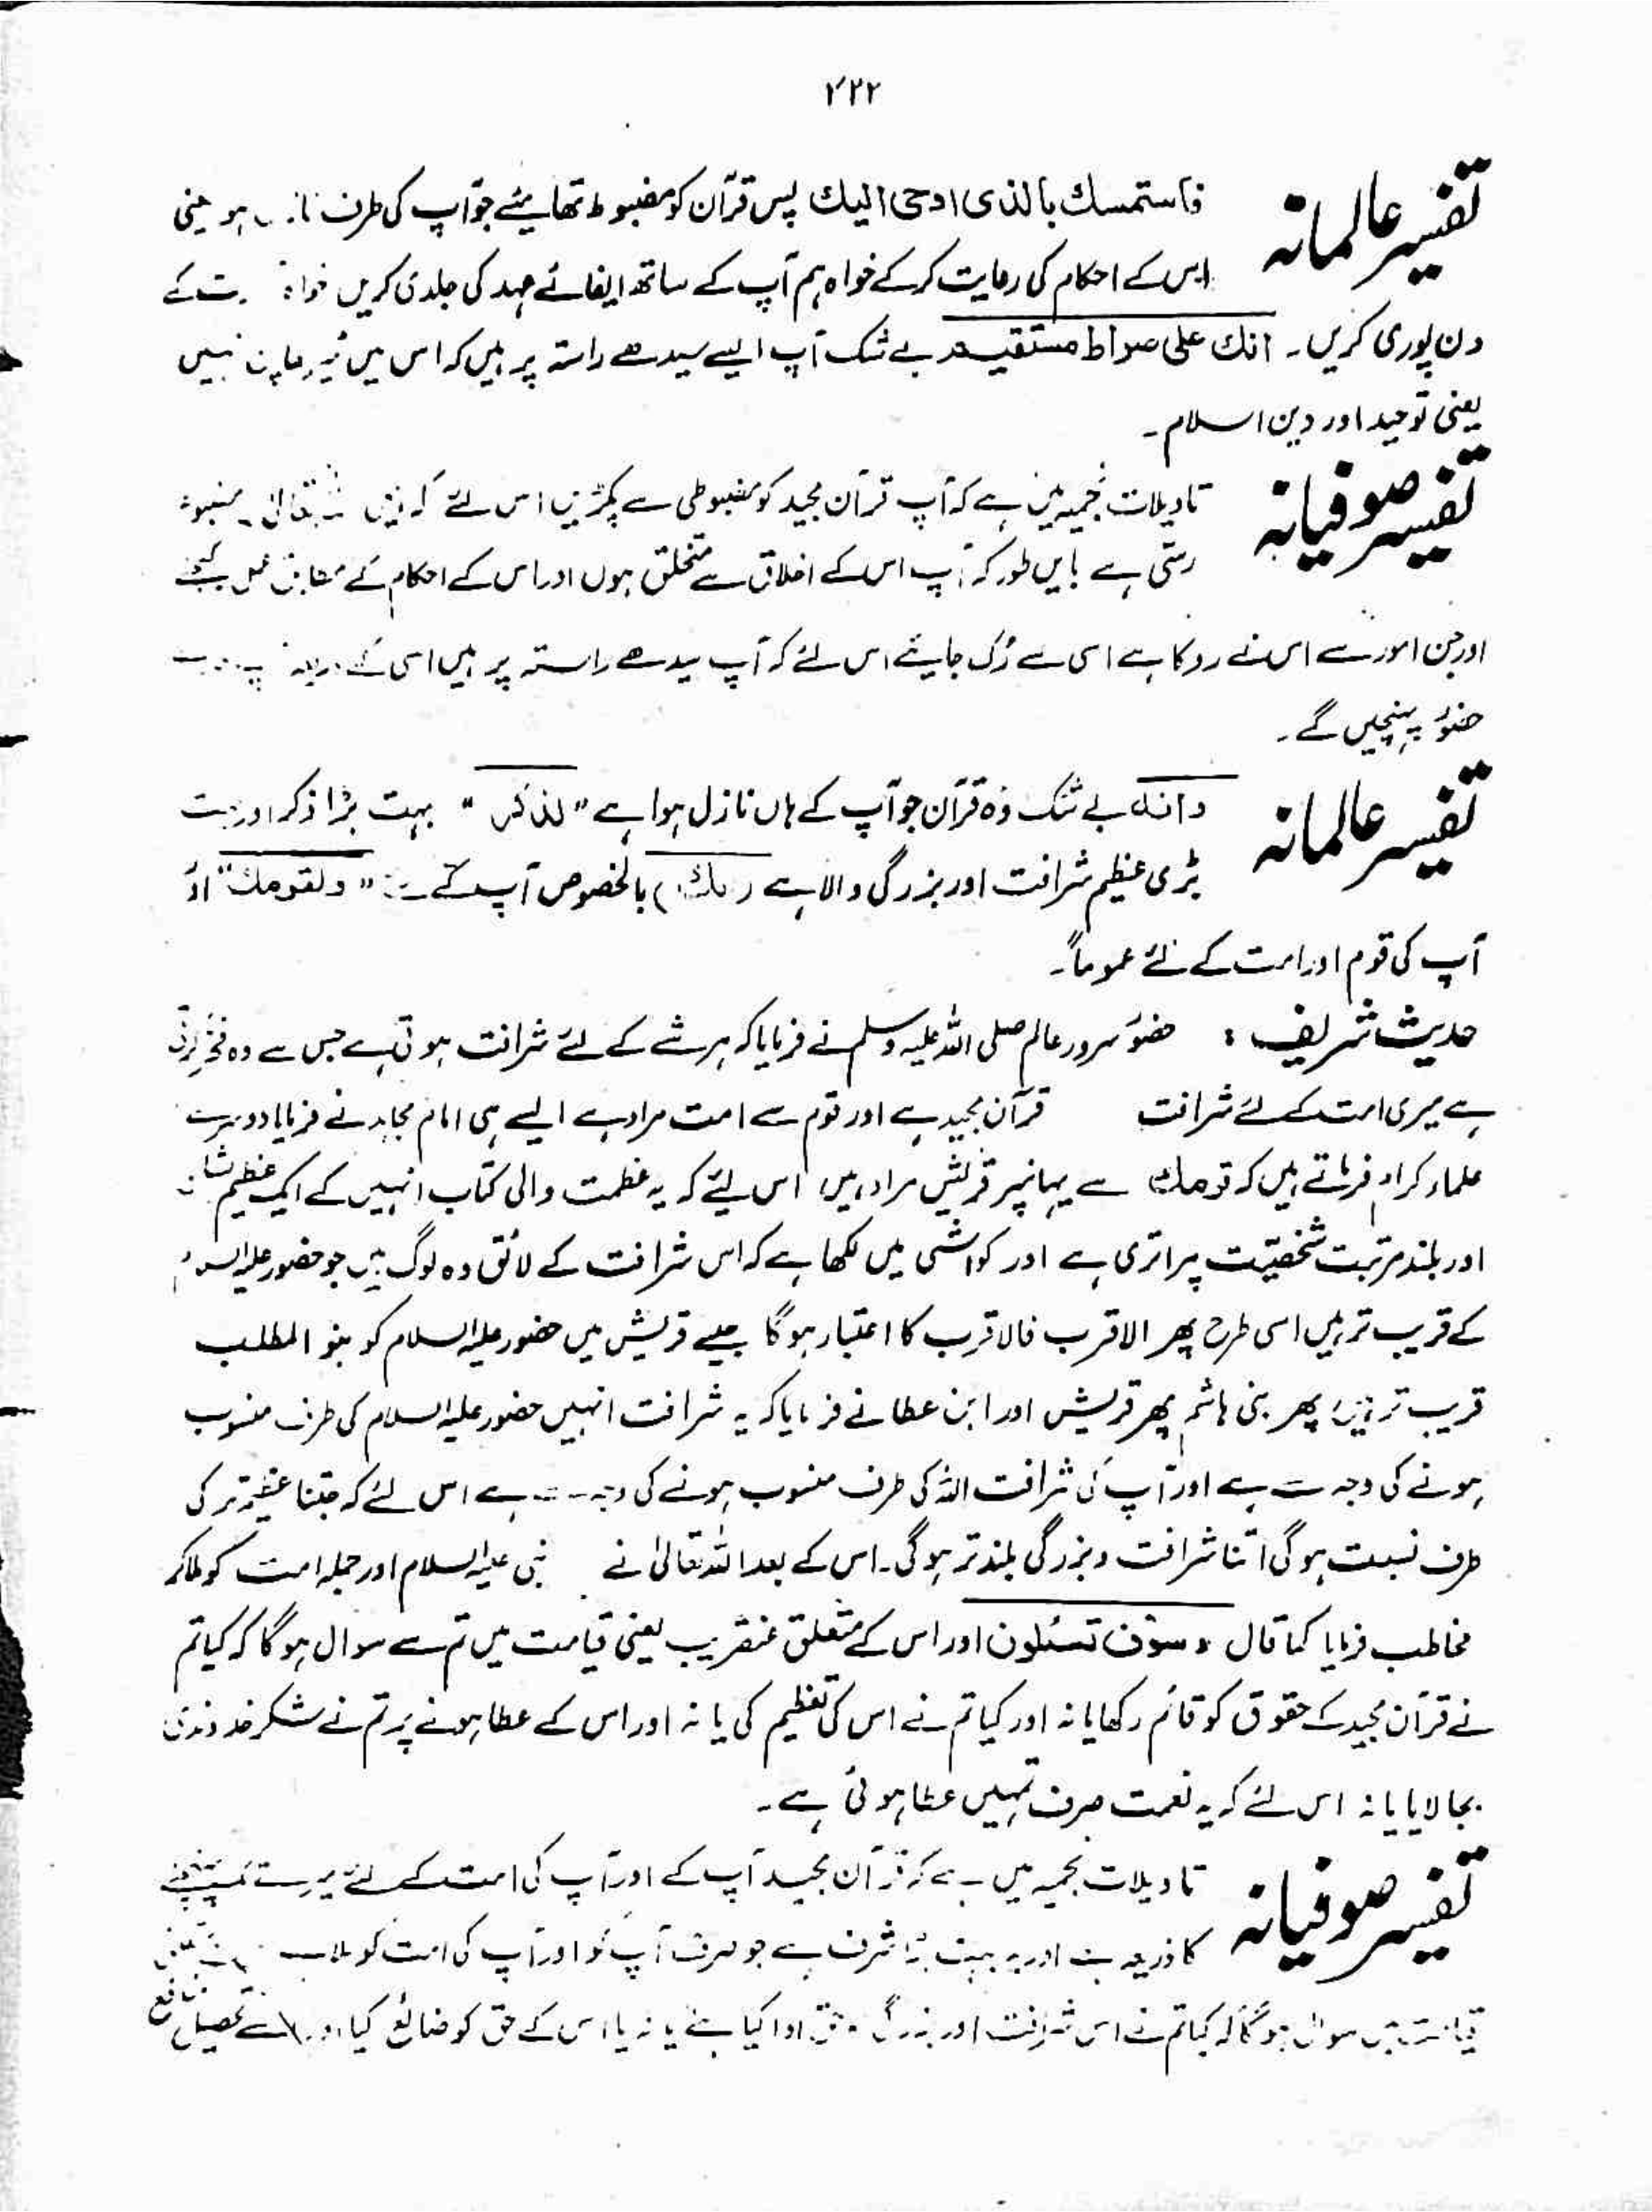 ۲۲۲
تفسیر عالمانہ
فاستمسك بالذى اوحى اليك پس قرآن کو مضبوط تھامیئے جو آپ کی طرف ہو یعنی
اس کے احکام کی رعایت کرکے خواہ ہم آپ کے ساتھ ایفائے عہد کی جلدی کریں خواہ کے
دن پوری کریں ۔ انك على صراط مستقيم بے شک آپ ایسے سیدھے راستہ پر ہیں کہ اس میں نہیں
یعنی توحید اور دین اسلام ۔
تفسیر صوفیانہ
تاویلات نجمیہ میں ہے کہ آپ قرآن مجید کو مضبوطی سے پکڑیں اس لئے کہ
رسی ہے بایں طور کہ آپ اس کے اخلاق سے متخلق ہوں اور اس کے احکام کے مطابق عمل کیجئے
اور جن امور سے اس نے روکا ہے اسی سے رُک جایئے اس لئے کہ آپ سیدھے راستہ پر ہیں اسی کے ذریعہ
حضور پہنچیں گے ۔
تفسیر عالمانہ
وانه بے شک وُہ قرآن جو آپ کے ہاں نازل ہوا ہے "لذكر" بہت بڑا ذکر اور بہت
بڑی عظیم شرافت اور بزرگی والا ہے (لك) بالخصوص آپ کے "ولقومك" اور
آپ کی قوم اور امت کے لئے عموماً ۔
حدیث شریف : حضور سرور عالم صلی اللہ علیہ وسلم نے فرمایا کہ ہر شے کے لئے شرافت ہوتی ہے جس سے وہ فخر کرتی
ہے میری امت کے لئے شرافت قرآن مجید ہے اور قوم سے امت مراد ہے ایسے ہی امام مجاہد نے فرمایا دوسرے
علماء کرام فرماتے ہیں کہ قومك سے یہاں پر قریش مراد ہیں اس لیئے کہ یہ عظمت والی کتاب انہیں کے ایک عظیم شان
اور بلند مرتبت شخصیت پر اتری ہے اور کواشی میں لکھا ہے کہ اس شرافت کے لائق وہ لوگ ہیں جو حضور علیہ السلام
کے قریب تر ہیں اسی طرح پھر الاقرب فالاقرب کا اعتبار ہوگا جیسے قریش میں حضور علیہ السلام کو بنو المطلب
قریب تر ہیں پھر بنی ہاشم پھر قریش اور ابن عطا نے فرمایا کہ یہ شرافت انہیں حضور علیہ السلام کی طرف منسوب
ہونے کی وجہ سے ہے اور آپ کی شرافت اللہ کی طرف منسوب ہونے کی وجہ سے ہے اس لئے کہ جتنا عظیم تر کی
طرف نسبت ہوگی اتنا شرافت و بزرگی بلند تر ہوگی ۔ اس کے بعد اللہ تعالیٰ نے نبی علیہ السلام اور جملہ امت کو ملا کر
مخاطب فرمایا کما قال وسوف تسئلون اور اس کے متعلق عنقریب یعنی قیامت میں تم سے سوال ہوگا کہ کیا تم
نے قرآن مجید کے حقوق کو قائم رکھا یا نہ اور کیا تم نے اس کی تعظیم کی یا نہ اور اس کے عطا ہونے پر تم نے شکر خداوندی
بجا لایا یا نہ اس لئے کہ یہ نعمت صرف تمہیں عطا ہوئی ہے ۔
تفسیر صوفیانہ
تاویلات نجمیہ میں ہے کہ قرآن مجید آپ کے اور آپ کی امت کے لئے میرے تک پہنچنے
کا ذریعہ ہے اور یہ بہت بڑا شرف ہے جو صرف آپ کو اور آپ کی امت کو ملا ہے
قیامت میں سوال ہوگا کہ کیا تم نے اس شرافت اور بزرگی حق ادا کیا ہے یا نہ یا اس کے حق کو ضائع کیا تحصیل منافع